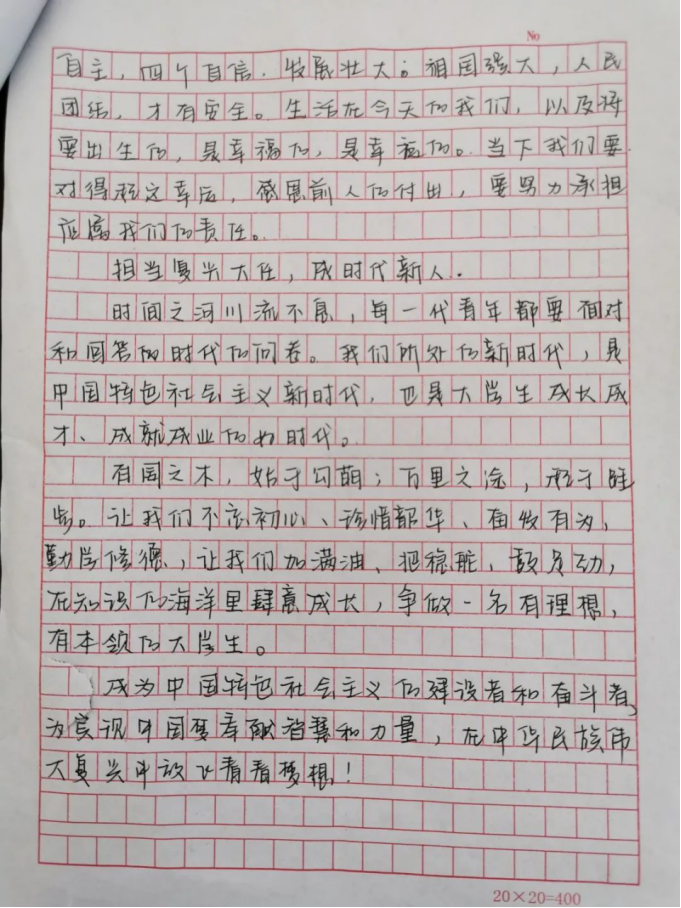 No
自主，四个自信，发展壮大。祖国强大，人民
团结，才有安全。生活在今天的我们，以及将
要出生的，是幸福的，是幸福的。当下我们要
对得起这幸后，感恩前人的付出，要努力承担
应属我们的责任。
担当复兴大任，成时代新人．
时间之河川流不息，每一代青年都要面对
和回答的时代的问卷。我们所处的新时代，是
中国特色社会主义新时代，也是大学生成长成
才、成就成业的好时代。
有园之木，始于勾萌；万里之途，起于跬
步。让我们不忘初心、珍惜韶华、奋发有为，
勤学修德，让我们加满油、把稳舵、鼓足劲，
在知识的海洋里肆意成长，争做一名有理想，
有本领的大学生。
成为中国特色社会主义的建设者和奋斗者，
为实现中国梦奉献智慧和力量，在中华民族伟
大复兴中放飞青春梦想！
20×20=400